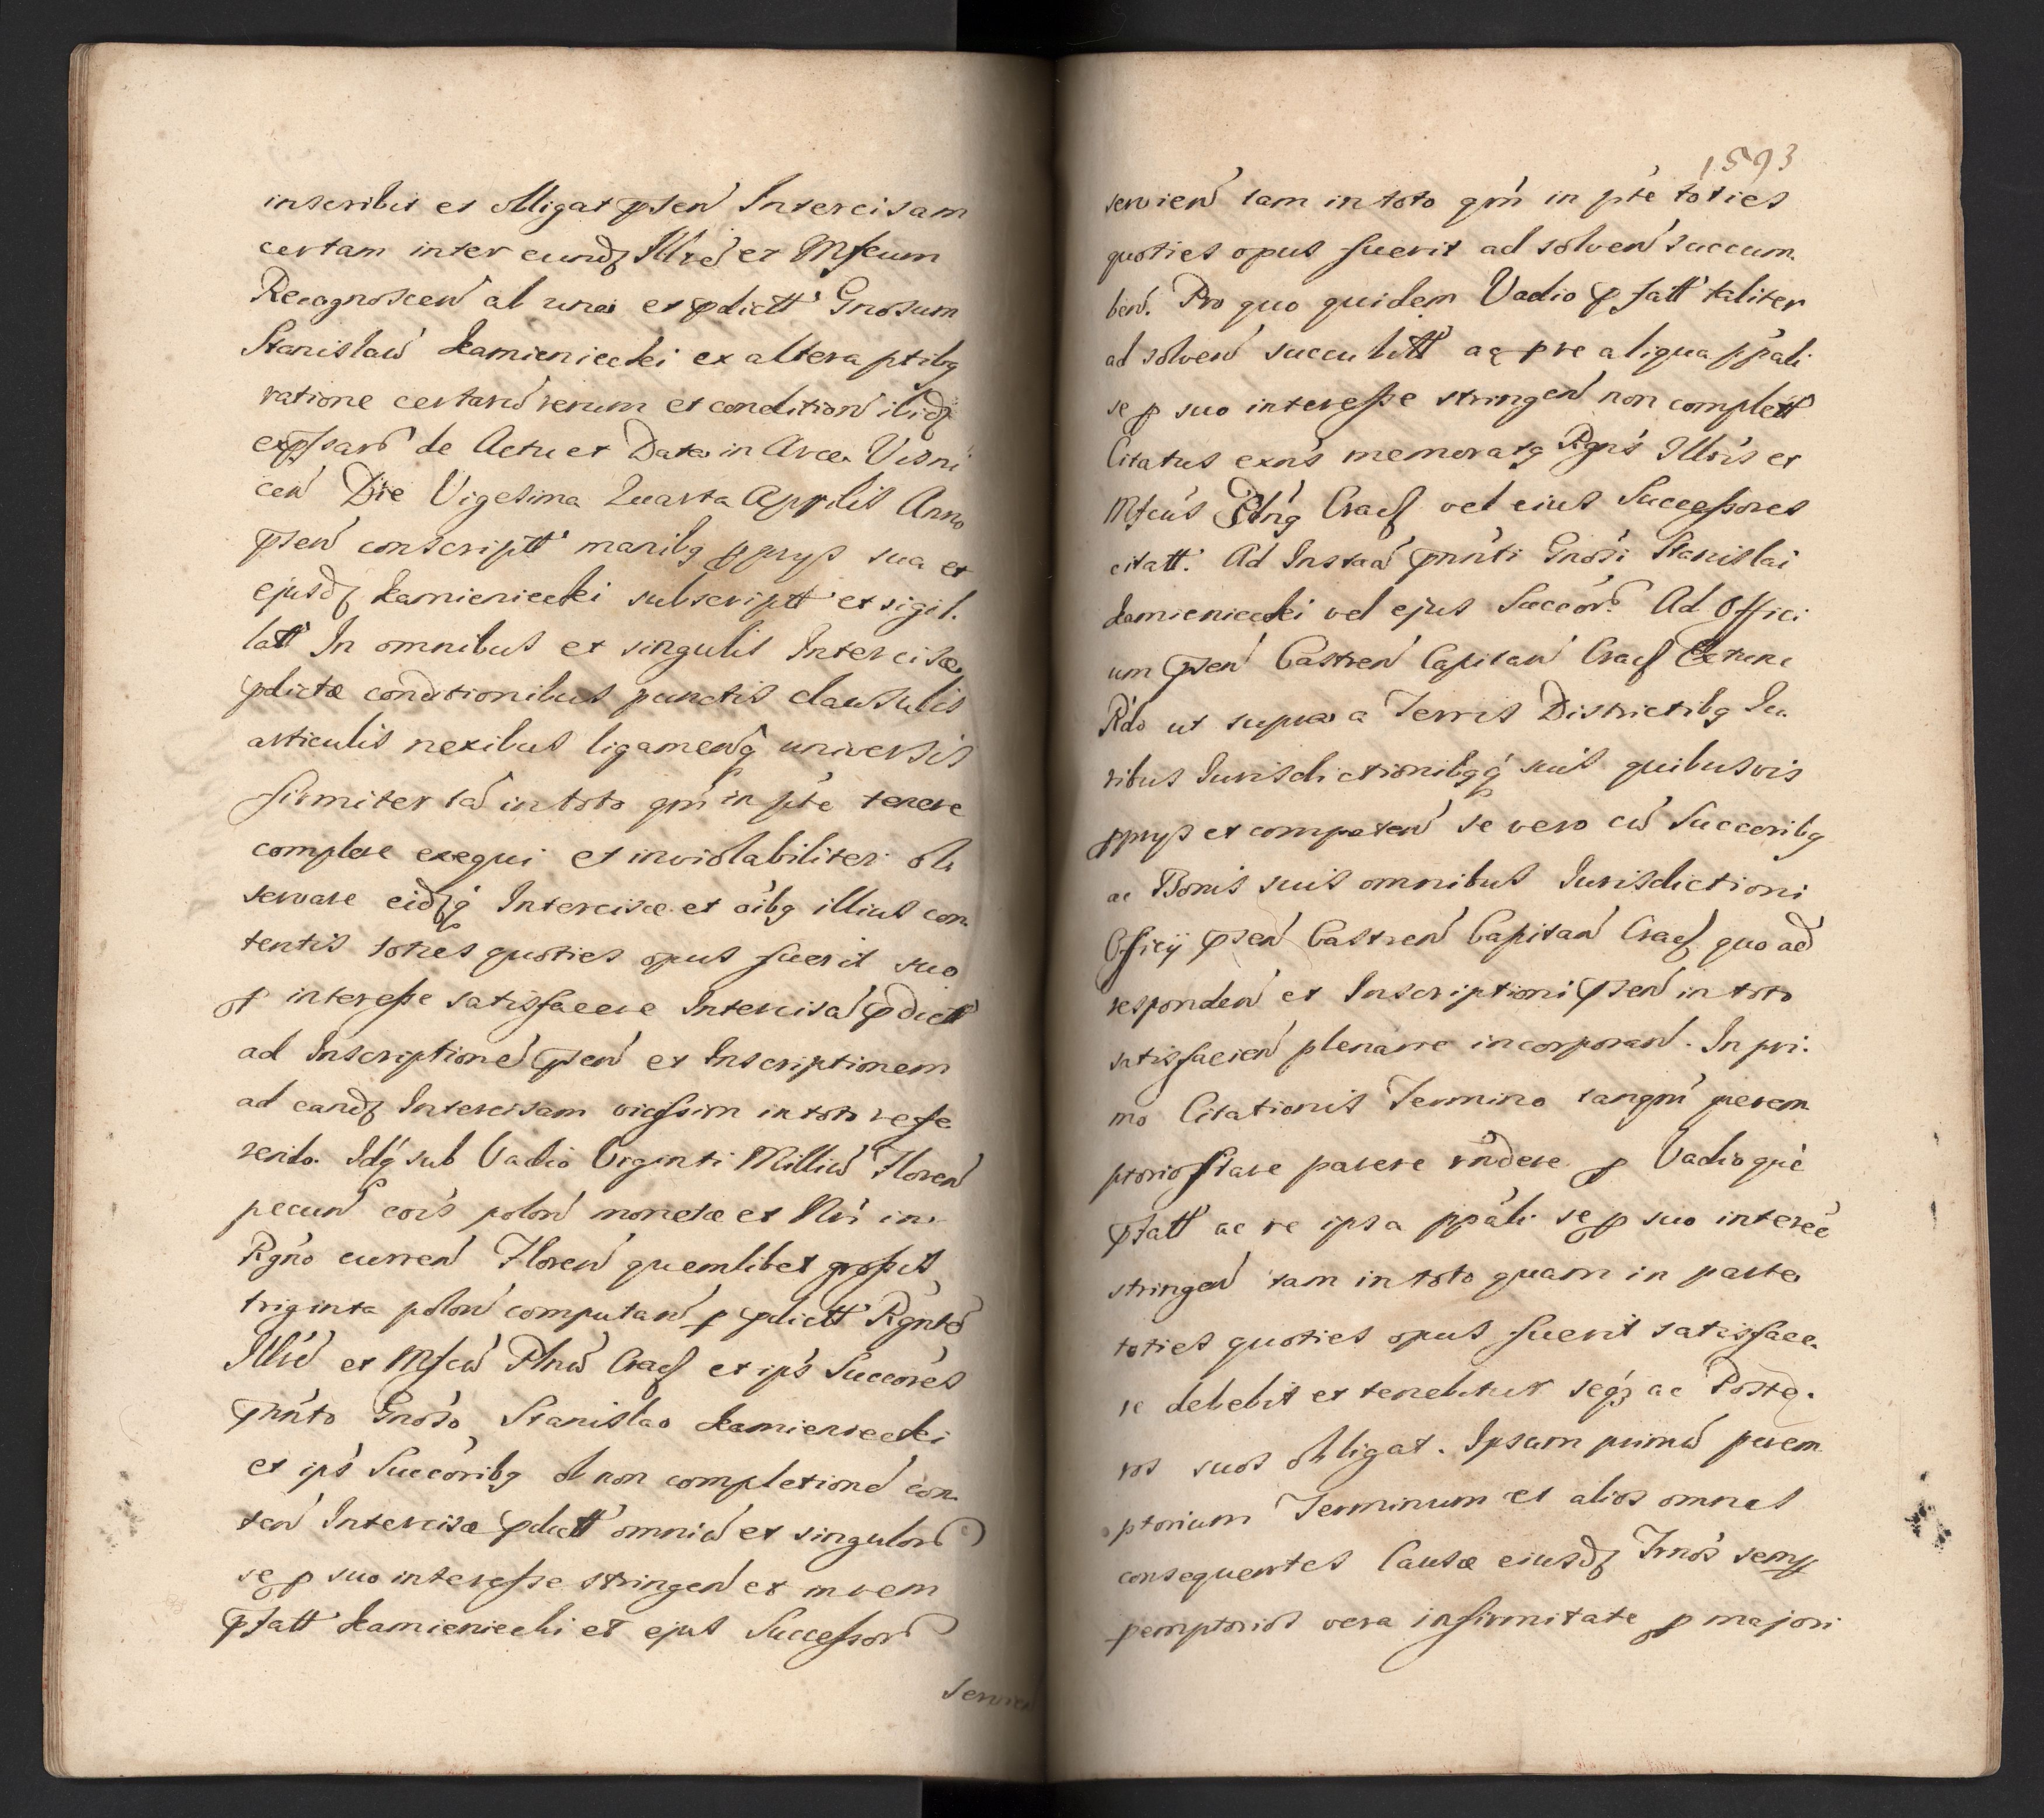 inscribit et obligat pñsen Intercisam
certam inter eundẽ Illrẽ et Mfcum
Recognoscen ab una et pdictt Gnosum
Stanislaũ Kamieniecki ex altera ptibg
ratione certarũ rerum et condition ibidẽ
expssarũ de Actu et Data in Arce Visni
cen Die Vigesima Quarta Apprilis Anno
psen conscriptt manibg pprys sua et
ejusdẽ Kamieniecki subscriptt et sigil.
latt In omnibus et singulis Intercisæ
pdictæ conditionibus punctis clausulis
articulis nexibus ligamenq̃ universis
firmiter tã in toto qm̃ in pte tenere
complere exequi et inviolabiliter ob
servare eidẽq̃ Intercisæ et oĩbg illius con.
tentis toties quoties opus fuerit suo
p interesse satisfacere Intercisã pdictt
ad Inscriptionẽ psen et Inscriptionem
ad eandẽ Intercisam vicissim in toto refe
rendo. Idq̃ sub Vadio Viginti Milliũ Floren
pecun cois polon monetæ et Nri in
Rgno curren Floren quemlibet grossis
triginta polon computan p pdictt Rgntẽ
Illrẽ et Mfcũ Plnũ Cracẽ et ips Succores
pnnto Gnoso Stanislao Kamieniecki
et ips Succoribg ob non completionẽ con.
ten Intercisæ pdictt omniũ et singulorũ
se p suo interesse stringen et in rem
pfatt Kamieniecki et ejus Successorũ
servien
1593
servien tam in toto qm̃ in pte toties
quoties opus fuerit ad solven succum.
ben. Pro quo quidem Vadio pfatt taliter
ad solven succubitt aq̃ p re aliqua ppali
se p suo interesse stringen non complett
Citatus exns memoratg Rgns Illris et
Mfcus Plng Cracẽ vel eius Successores
citatt. Ad Instaã pnnti Gnosi Stanislai
Kamieniecki vel ejus Succorũ Ad Offici
um psen Castren Capitan Cracẽ Extunc
Rdo ut supra a Terris Districtibg Iu.
ribus Iurisdictionibgq̃ suis quibusvis
pprys et competen se vero cũ Succoribg
ac Bonis suis omnibus Iurisdictioni
Officij psen Castren Capitan Cracẽ quo ad
responden et Inscriptioni psen in toto
satisfacien plenarie incorporan. In pri.
mo Citationis Termino tanqm̃ perem
ptorio Stare parere rñdere p Vadioque
pfatt ac re ipsa ppali se p suo intereẽ
stringen tam in toto quam in parte
toties quoties opus fuerit satisface.
re debebit et tenebitur seqʒ ac Poste.
ros suos obligat. Ipsum primũ perem
ptorium Terminum et alios omnes
consequentes Causæ eiusdẽ Trnos semp
pemptorios vera infirmitate p majori